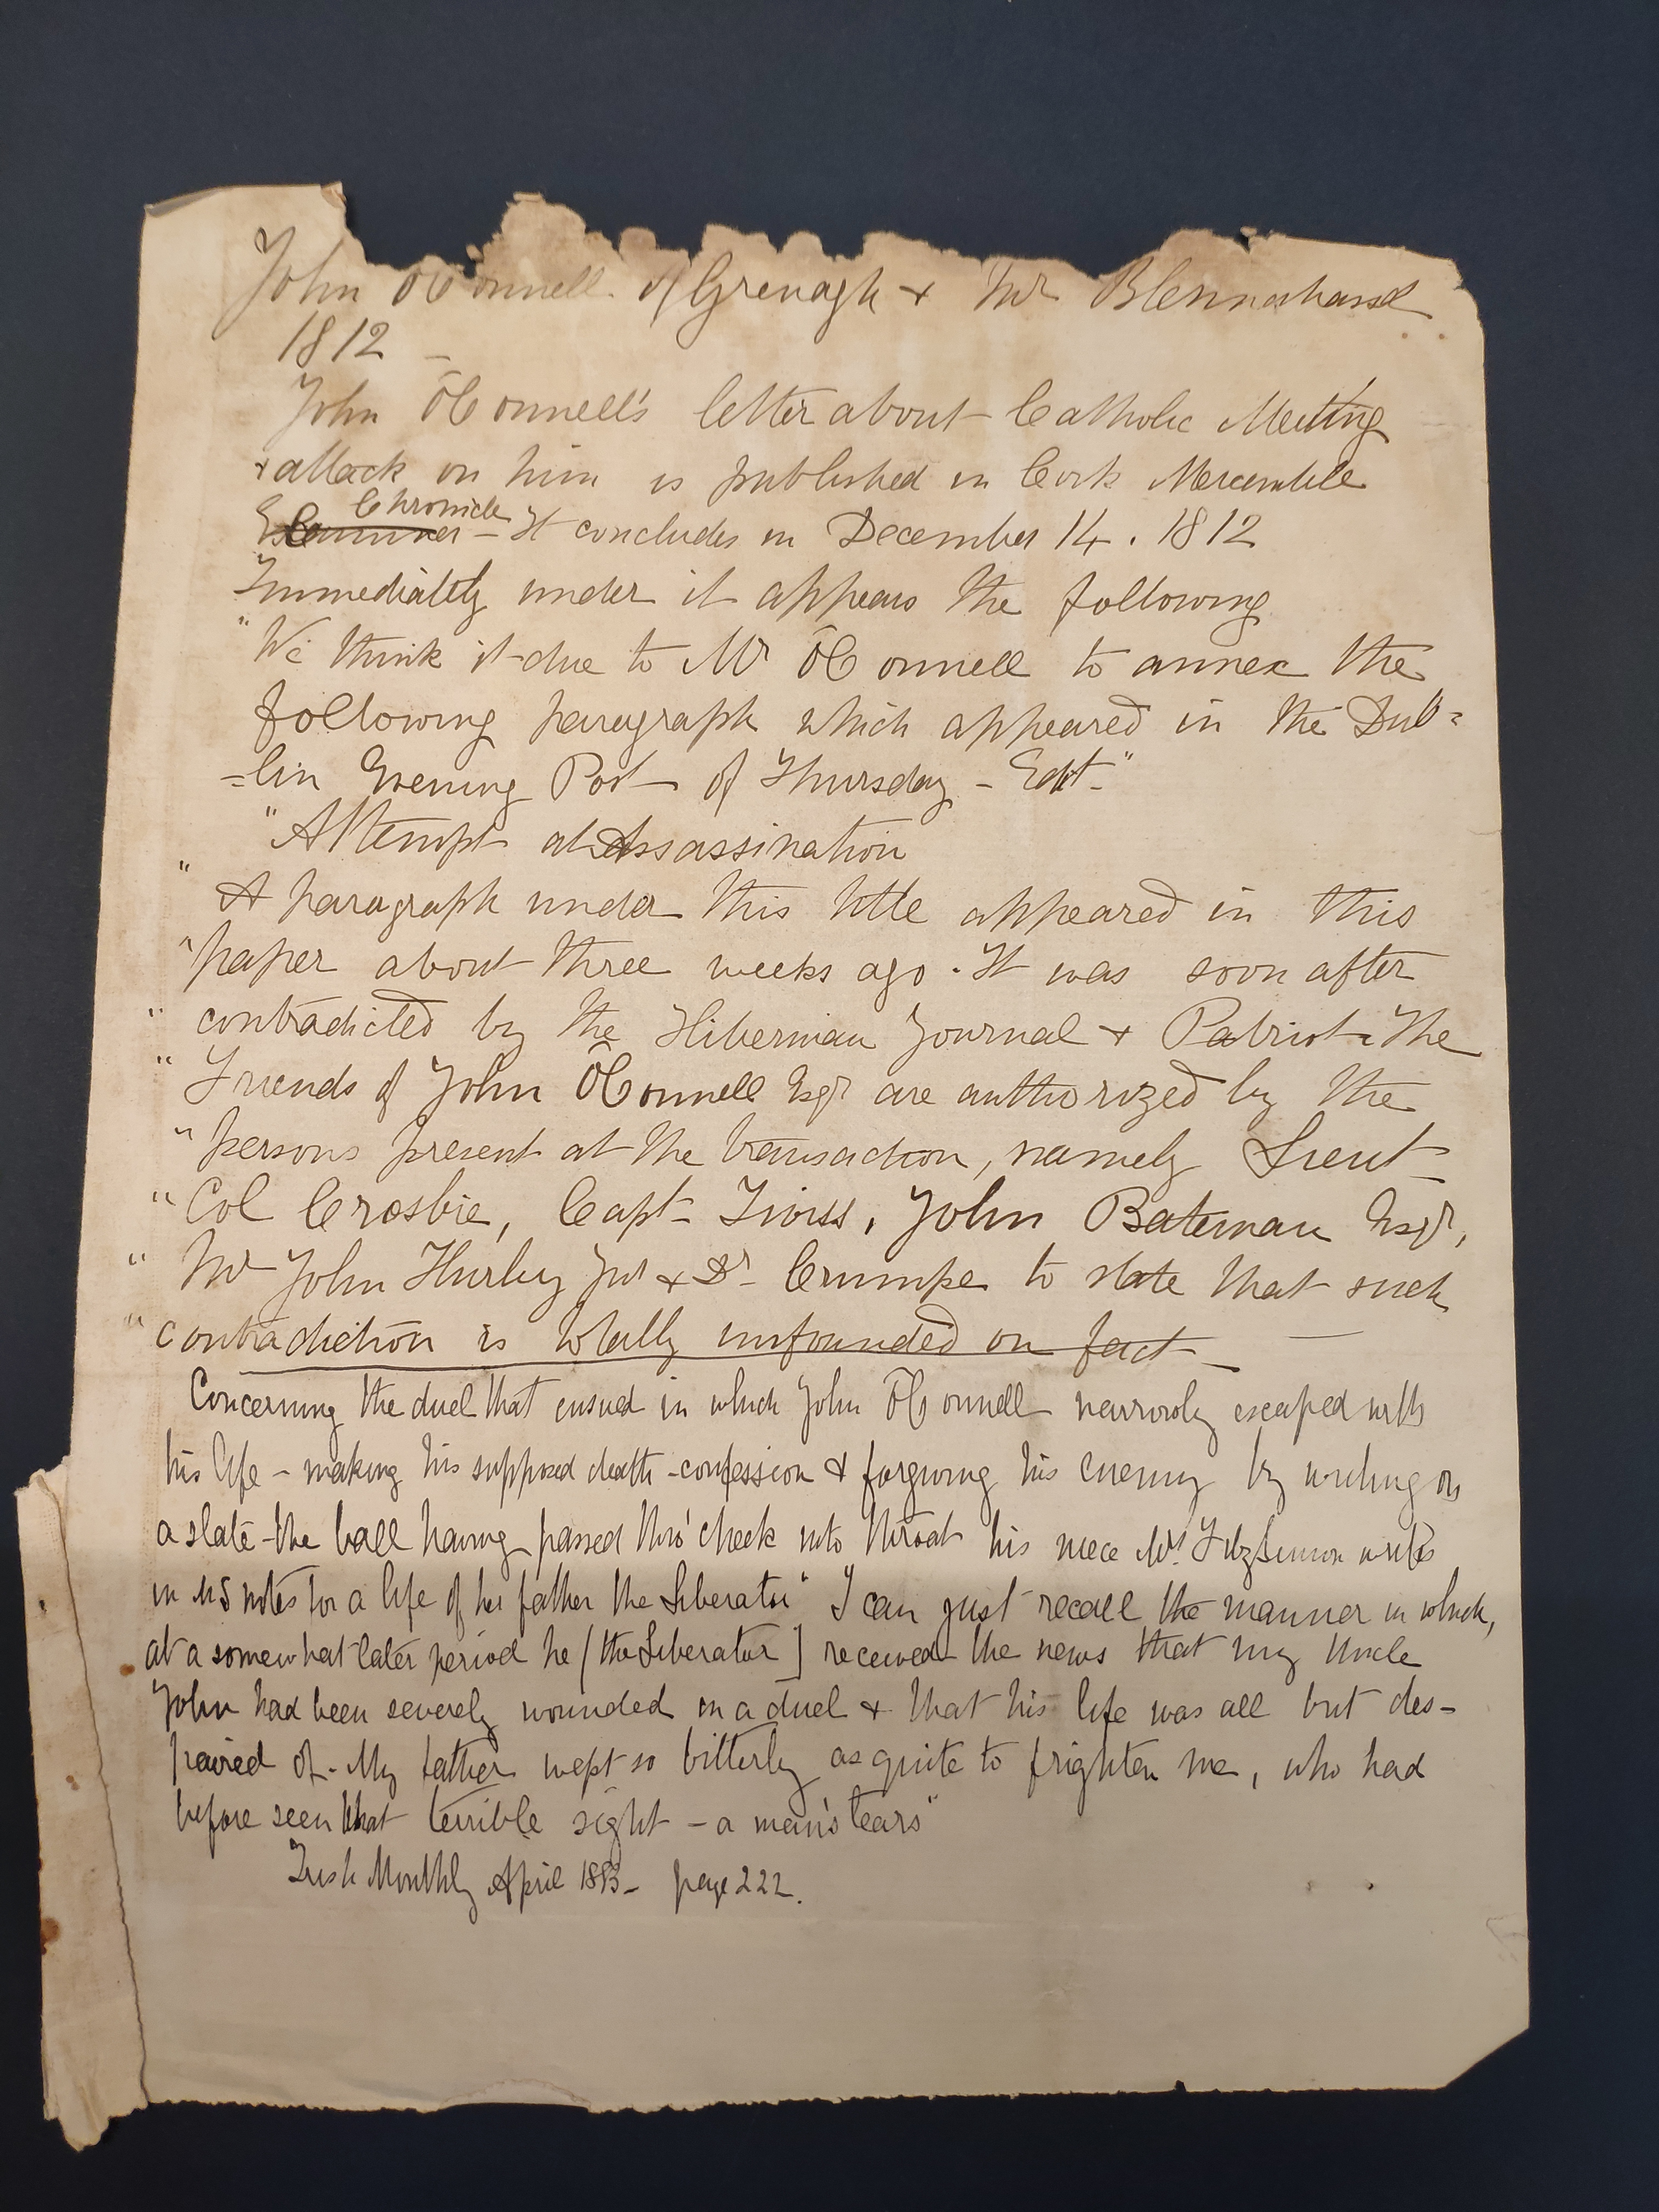 John O'Connell of Grenagh + Mr Blennerhassett
1812 –
John O'Connell's letter about Catholic Meeting
+ attack on him is published in Cork Mercantile
Chronicle
Examiner – It concludes in December 14. 1812
Immediately under it appears the following
"We think it due to Mr O'Connell to annex the
following paragraph which appeared in the Dub=
=lin Evening Post of Thursday – Edt."
"Attempt at Assassination
" A paragraph under this title appeared in this
"paper about three weeks ago. It was soon after
" contradicted by the Hibernian Journal + Patriot. The
" Friends of John O'Connell Esqr are authorized by the
"persons present at the transaction, namely Lieut–
"Col Crosbie, Capt– Twiss, John Bateman Esqr,
" Mr John Hurley Jnr + Dr Crumpe to state that such
" contradiction is totally unfounded on fact –
Concerning the duel that ensued in which John O'Connell narrowly escaped with
his life – making his supposed death-confession & forgiving his enemy by writing on
a slate – the ball having passed thro' cheek into throat his niece Mrs. FitzSimon writes
in MS notes for a life of her father the Liberator "I can just recall the manner in which,
at a somewhat later period he [the Liberator] received the news that my Uncle
John had been severely wounded in a duel & that his life was all but des–
paired of. My father wept so bitterly as quite to frighten me, who had
before seen that terrible sight – a man's tears"
Irish Monthly April 1883 – page 222.